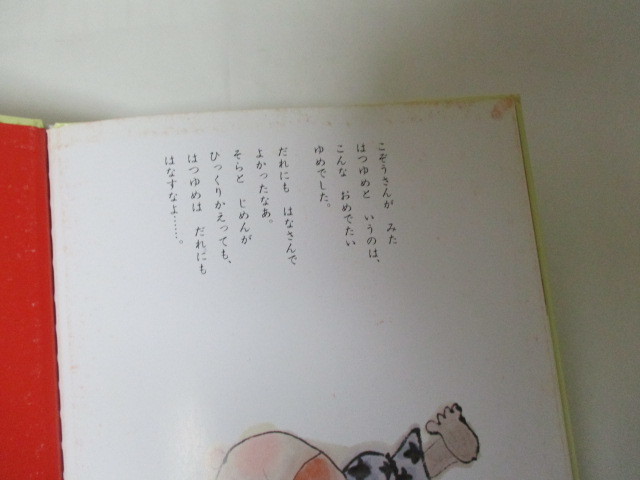 こぞうさんが　みた
はつゆめと　いうのは、
こんな　おめでたい
ゆめでした。
だれにも　はなさんで
よかったなあ。
そらと　じめんが
ひっくりかえっても、
はつゆめは　だれにも
はなすなよ……。